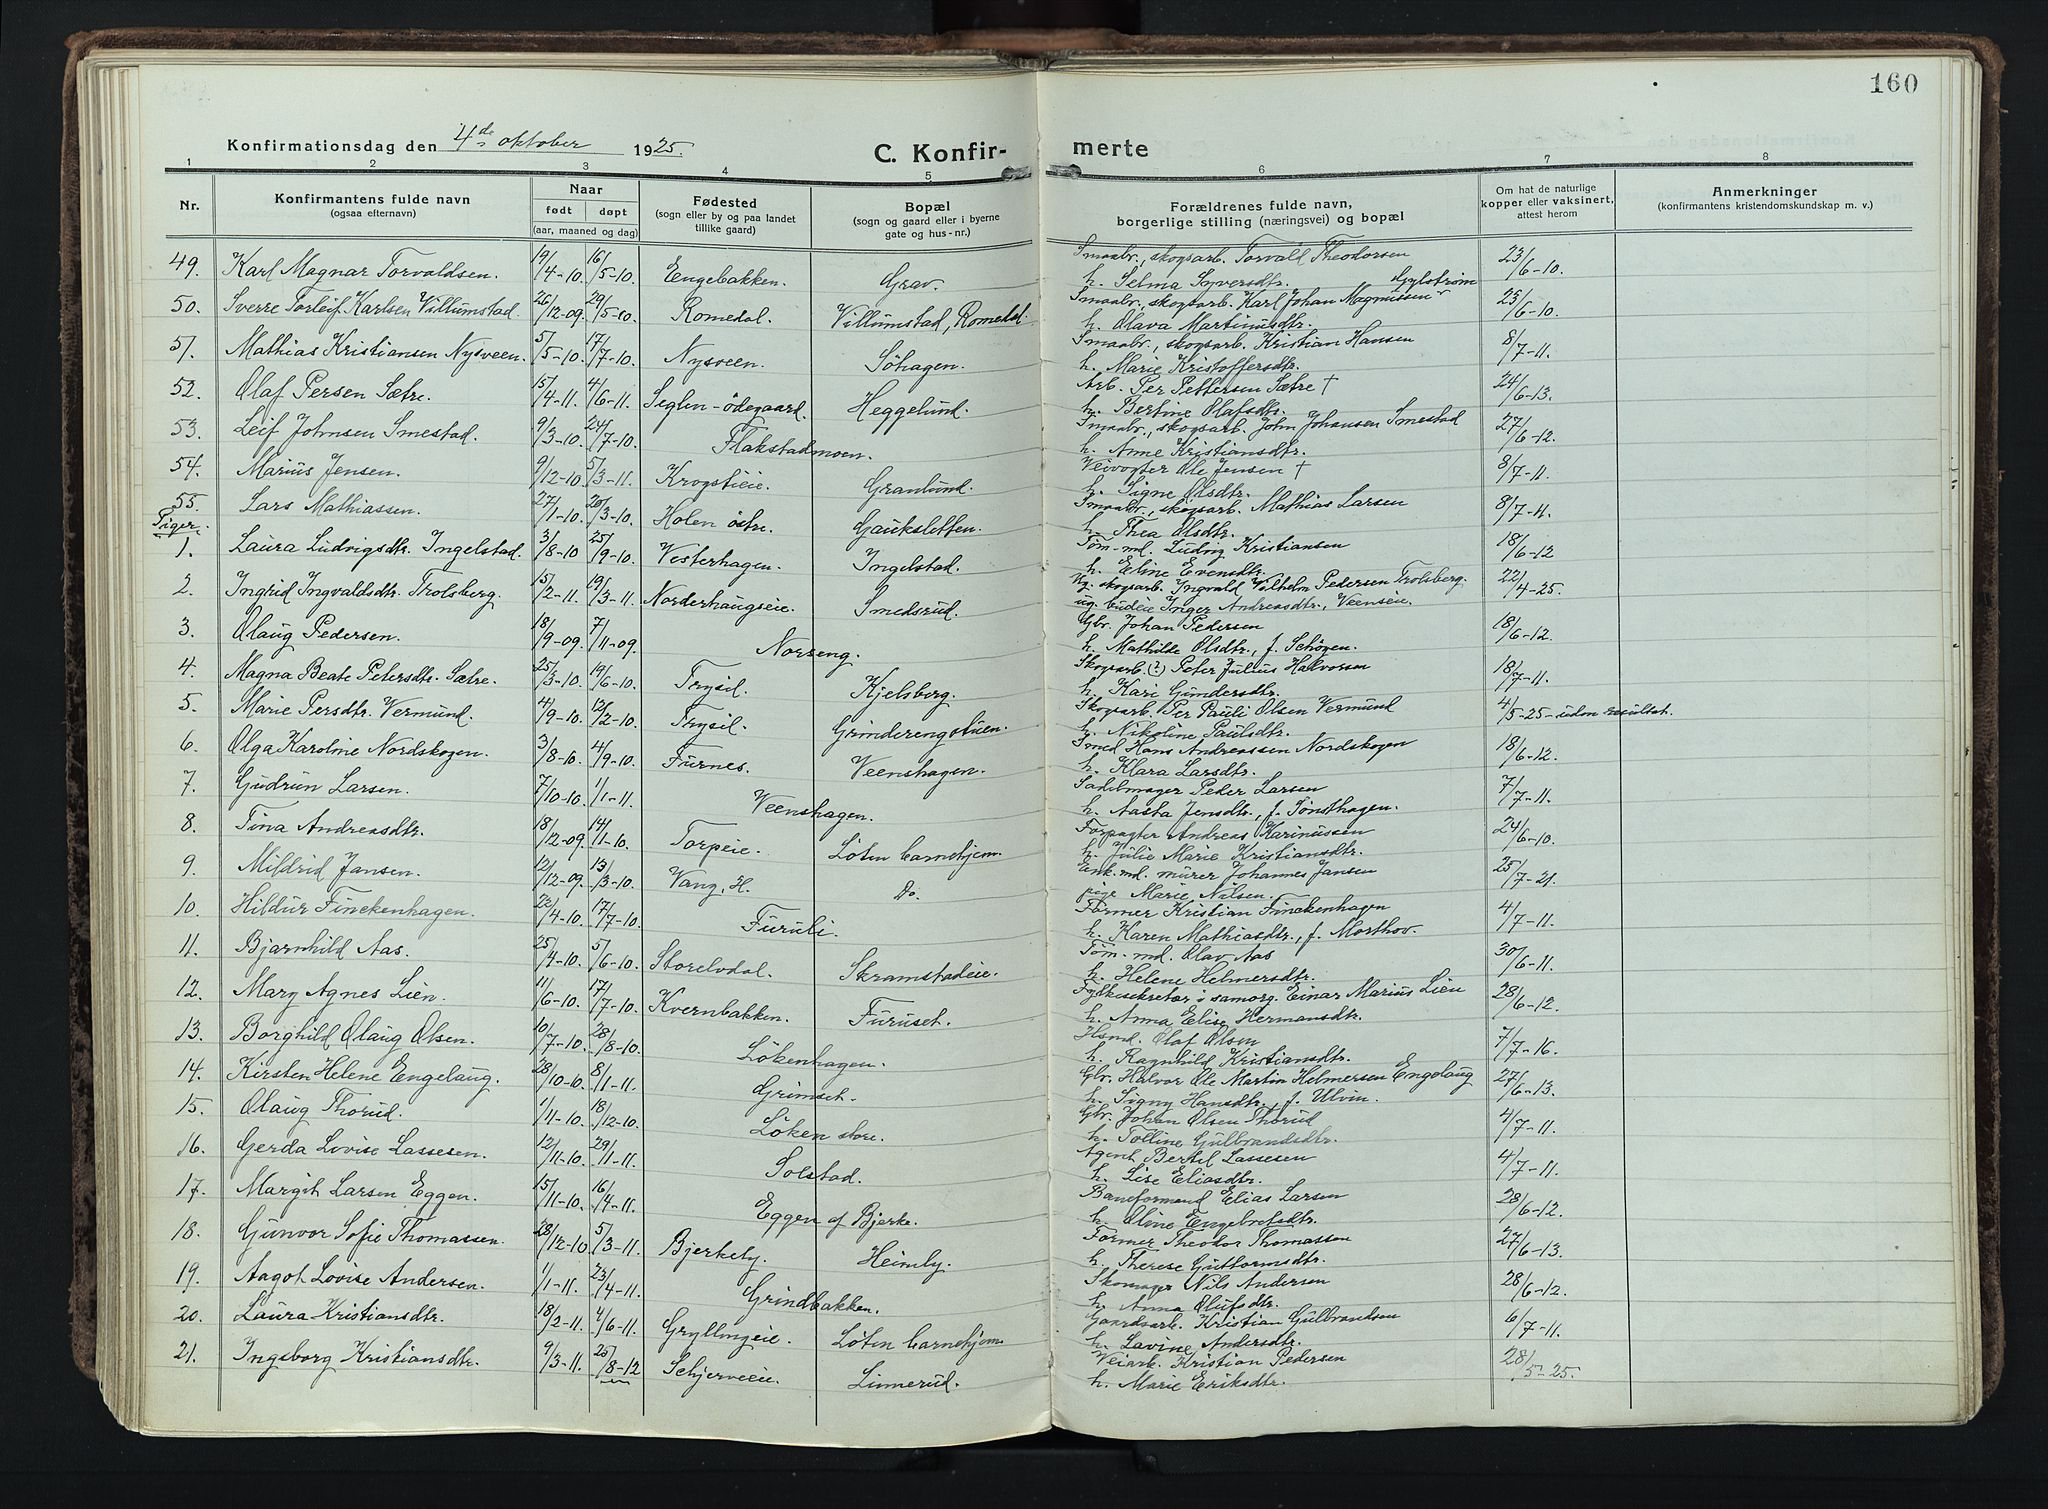 160
Konfirmationsdag den 4de oktober 1925.
C. Konfir-
merte
1 2 3 4 5 6 7 8
Nr.
Konfirmantens fulde navn
(ogsaa efternavn)
Naar
født døpt
(aar, maaned og dag)
Fødested
(sogn eller by og paa landet
tillike gaard)
Bopæl
(sogn og gaard eller i byerne
gate og hus-nr.)
Forældrenes fulde navn,
borgerlige stilling (næringsvei) og bopæl
Om hat de naturlige
kopper eller vaksinert,
attest herom
Anmerkninger
(konfirmantens kristendomskundskap m. v.)
49. Karl Magnar Torvaldsen. 19/4-10. 16/5-10. Engebakken. Grav. Smaabr., skogsarb. Torvald Theodorsen 23/6-10.
h. Selma Syversdtr. Gylstrøm
50. Sverre Torleif Karlsen Villumstad. 26/12-09. 29/5-10. Romedal. Villumstad, Romedal. Smaabr., skogsarb. Karl Johan Magnussen 25/6-10.
h. Olava Martinusdtr.
51. Mathias Kristiansen Nysveen. 5/5-10. 17/7-10. Nysveen. Söhagen. Smaabr., skogsarb. Kristian Hansen 8/7-11.
h. Marie Kristoffersdtr.
52. Olaf Persen Sætre. 15/4-11. 4/6-11. Seglen-ödegaard. Heggelund. Arb. Per Pettersen Sætre † 24/6-13.
h. Bertine Olafsdtr.
53. Leif Johnsen Smestad. 9/3-10. 24/7-10. Flakstadmoen. Smaabr., skogsarb. John Johansen Smestad 27/6-12.
h. Anne Kristiansdtr.
54. Marius Jensen. 9/12-10. 5/3-11. Krogstieie. Granlund. Veivogter Ole Jensen † 8/7-11.
h. Signe Olsdtr.
55. Lars Mathiassen. 27/1-10. 20/3-10. Holen östre. Gauksletten. Smaabr., skogsarb. Mathias Larsen 8/7-11.
h. Thea Olsdtr.
Piger.
1. Laura Ludvigsdtr. Ingelstad. 3/8-10 25/9-10. Vesterhagen. Ingelstad. Töm.-md. Ludvig Kristiansen 18/6-12
h. Eline Evensdtr.
2. Ingrid Ingvaldsdtr. Trolsberg. 15/2-11. 19/3-11. Norderhaugseie. Smedsrud. Ug. skogsarb. Ingvald Vilhelm Pedersen Trolsberg. 22/4-25.
ug. budeie Inger Andreasdtr., Veenseie.
3. Olaug Pedersen. 18/9-09. 7/11-09. Norseng. Gbr. Johan Pedersen 18/6-12.
h. Mathilde Olsdtr., f. Schöyen.
4. Magna Beate Petersdtr. Sætre. 25/3-10. 19/6-10. Trysil. Kjelsberg. Skogsarb. (?) Peter Julius Halvorsen 18/7-11.
h. Kari Gundersdtr.
5. Marie Persdtr. Vermund. 4/9-10. 12/2-10. Trysil. Grinderengstuen. Skogsarb. Per Pauli Olsen Vermund 4/5-25-uden resultat.
h. Nikoline Paulsdtr.
6. Olga Karoline Nordskogen. 3/8-10. 4/9-10. Furnes. Veenshagen. Smed Hans Andreassen Nordskogen 18/6-12.
h. Klara Larsdtr.
7. Gudrun Larsen. 7/10-10. 1/1-11. Veenshagen. Sadelmager Peder Larsen 7/7-11.
h. Aasta Jensdtr., f. Tøndhagen.
8. Tina Andreasdtr. 18/12-09. 14/1-10. Torpeie. Löten barnehjem. Forpagter Andreas Karinussen 24/6-10.
h. Julie Marie Kristiansdtr.
9. Mildrid Jansen. 12/12-09. 13/3-10. Vang, H. Do. Enk.md. murer Johannes Jansen 25/7-21.
pige Marie Nilsen.
10. Hildur Finckenhagen. 22/4-10. 17/7-10. Furuli. Former Kristian Finckenhagen 4/7-11.
h. Karen Mathiasdtr., f. Morthov.
11. Bjarnhild Aas. 25/4-10. 5/6-10. Storelvdal. Skramstadeie. Töm.-md. Olav Aas 30/6-11.
h. Helene Helmersdtr.
12. Mary Agnes Lien. 11/6-10. 17/7-10. Kvernbakken. Furuset. Fylkessekretær i samorg. Einar Marius Lien 28/6-12.
h. Anna Elise Hermansdtr.
13. Borghild Olaug Olsen. 10/7-10. 28/8-10. Lökenhagen. Hsmd. Olaf Olsen 7/7-16.
h. Ragnhild Kristiansdtr.
14. Kirsten Helene Engelaug. 28/10-10. 8/1-11. Grimset. Gbr. Halvor Ole Martin Helmersen Engelaug 27/6-13.
h. Signy Hansdtr., f. Ulvin.
15. Olaug Thorud. 1/11-10. 18/12-10. Löken store. Gbr. Johan Olsen Thorud 4/7-11.
h. Tolline Gulbrandsdtr.
16. Gerda Lovise Lassesen. 12/11-10. 29/1-11. Solstad. Agent Bertel Lassesen 4/7-11.
h. Lise Eliasdtr.
17. Margit Larsen Eggen. 15/11-10. 16/4-11. Eggen af Bjerke. Baneformand Elias Larsen 28/6-12.
h. Oline Engebretsdtr.
18. Gunvor Sofie Thomassen. 28/12-10. 5/3-11. Bjerkely. Heimly. Former Theodor Thomassen 27/6-13.
h. Therese Guttormsdtr.
19. Aagot Lovise Andersen. 1/1-11. 23/4-11. Grindbakken. Skomager Nils Andersen 28/6-12.
h. Anna Olufsdtr.
20. Laura Kristiansdtr. 18/2-11. 4/6-11. Gryllingeie. Löten barnehjem. Gaardsarb. Kristian Gulbrandsen 6/7-11.
h. Lavine Andersdtr.
21. Ingeborg Kristiansdtr. 9/3-11. 25/8-12 Schjerveeie. Linnerud. Veiarb. Kristian Pedersen 28/5-25.
h. Marie Eriksdtr.